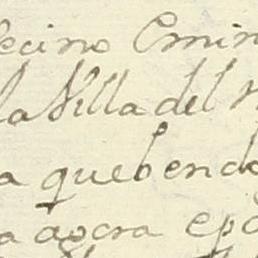 ecino Emin
la Villa del
a quebendo
a agora epo